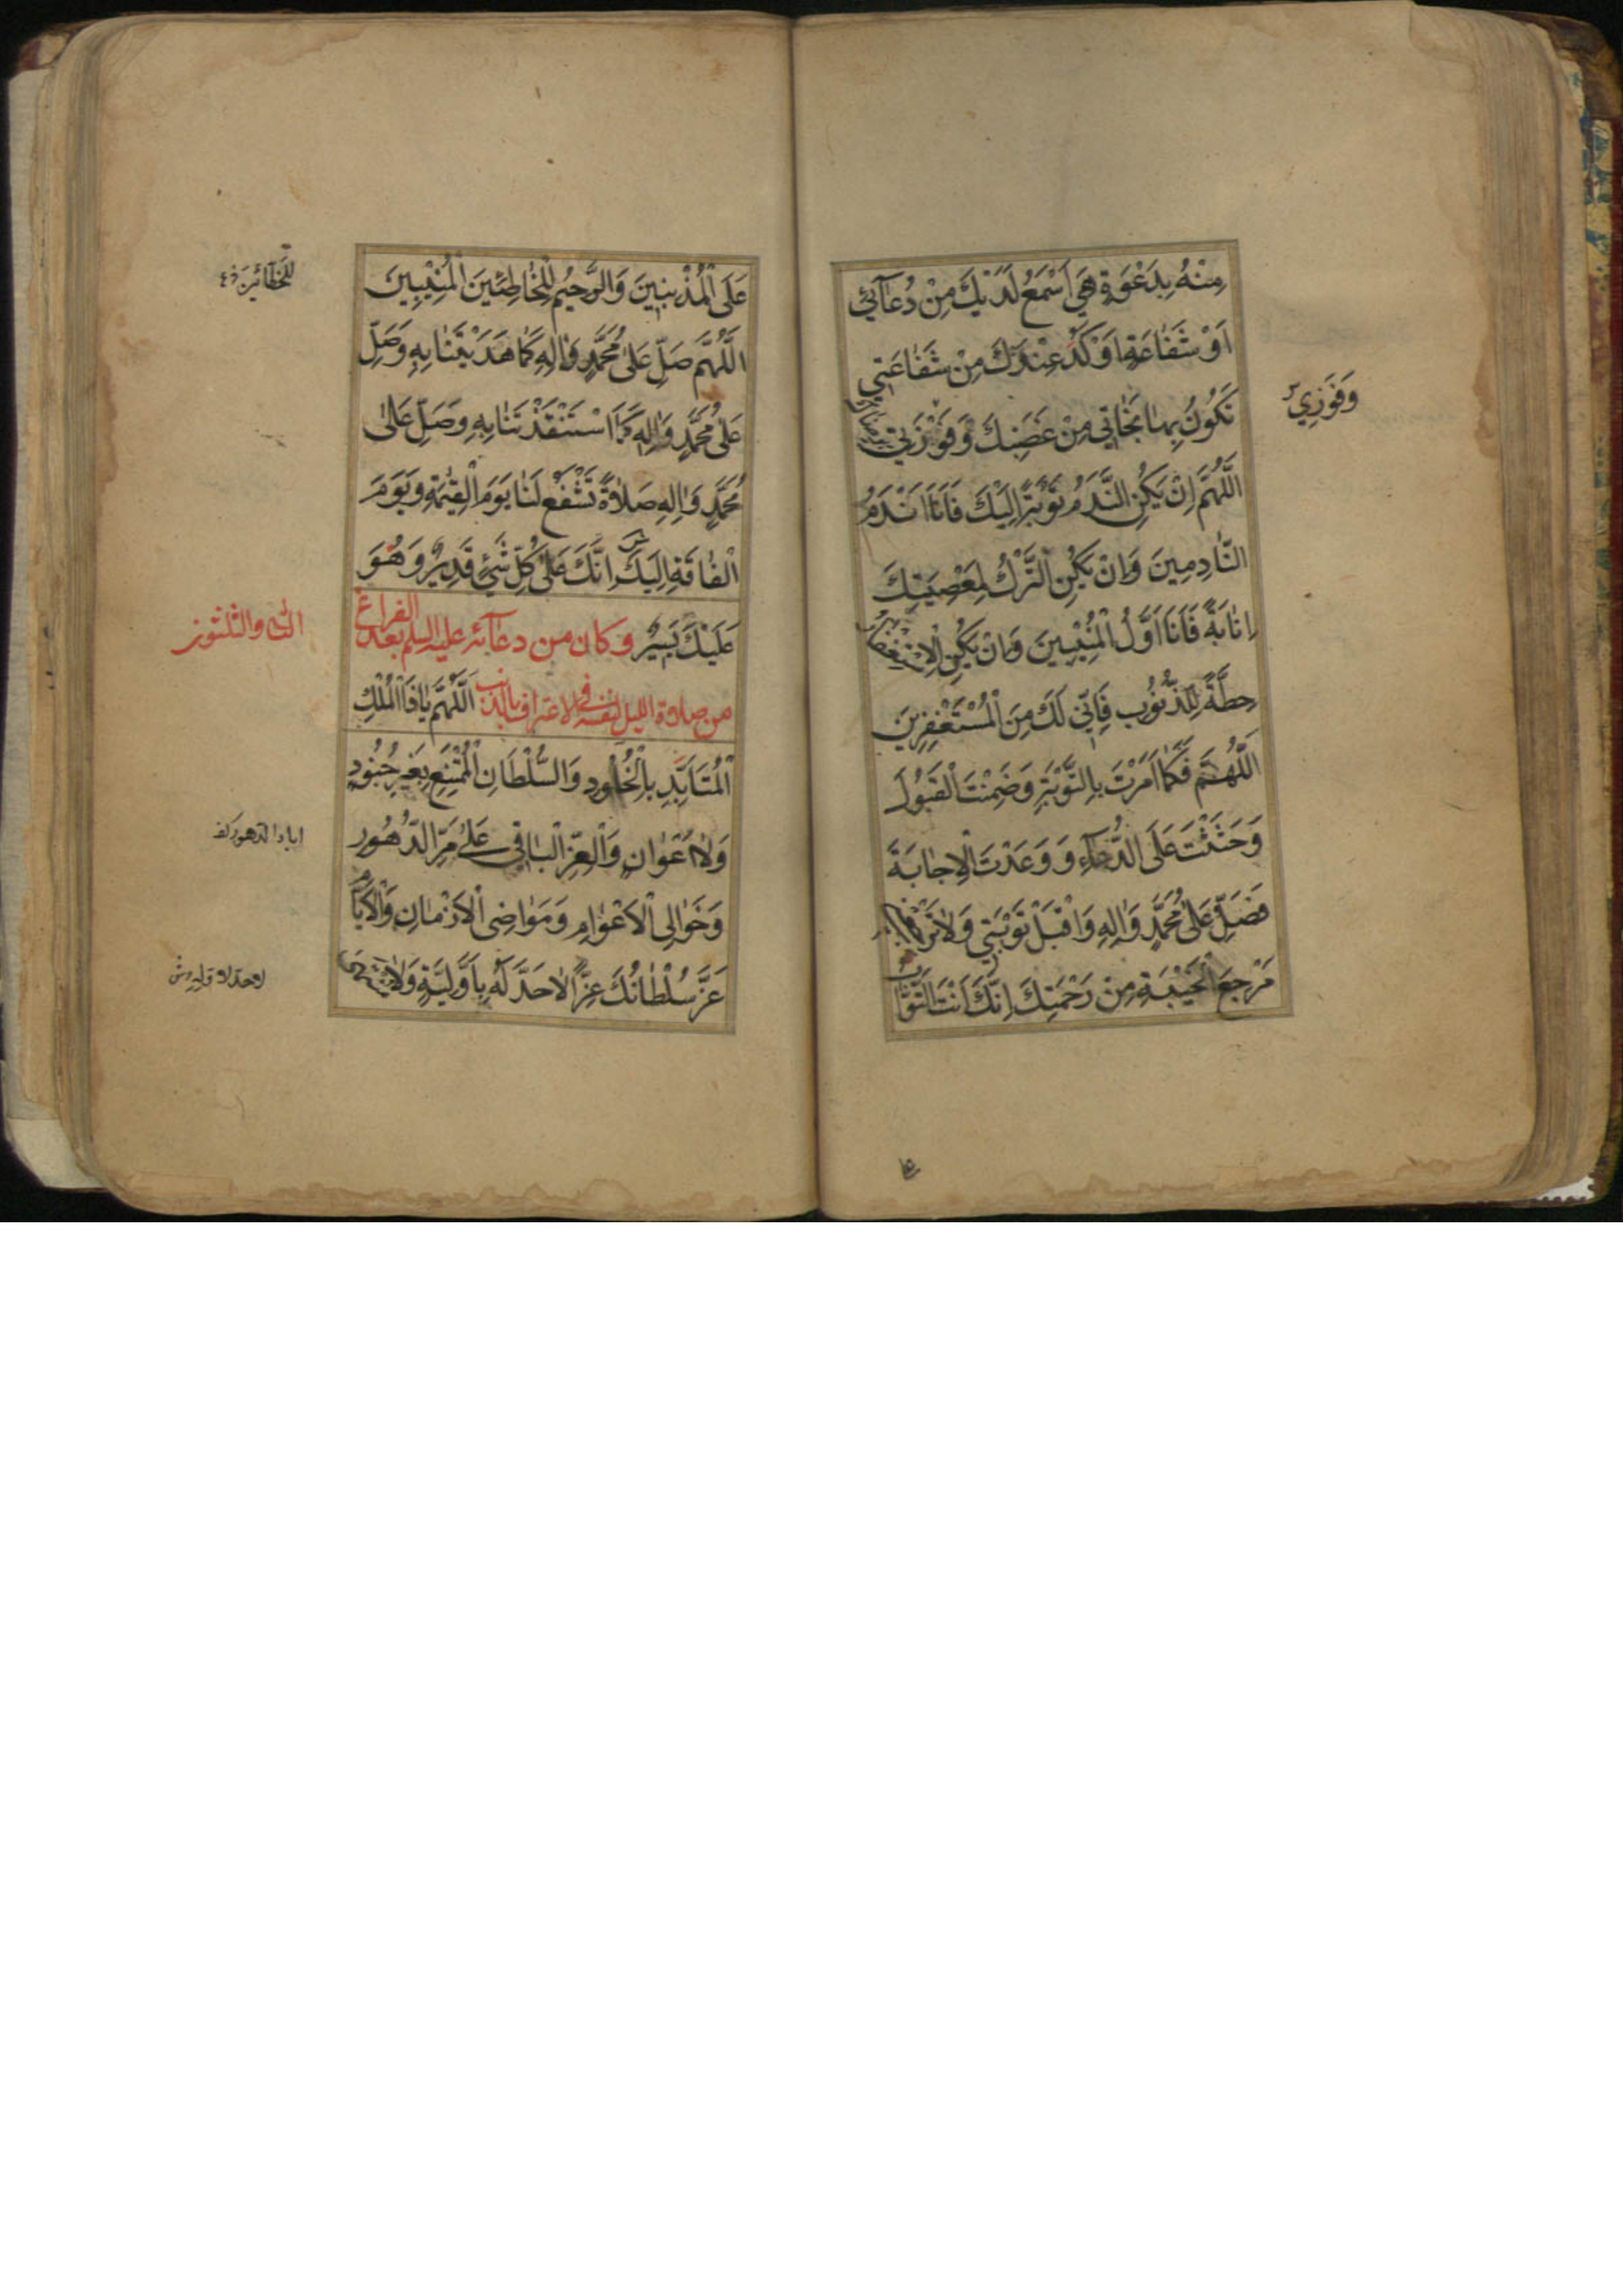 مِنْهُ بِدَعْوَةٍ هِيَ اَسْمَعُ لَدَيْكَ مِنْ دُعَآئِي
اَوْ شَفَاعَةٍ اَوْكَدُ عِنْدَكَ مِنْ شَفَاعَتِي
تَكُونُ بِهَا نَجَاتِي مِنْ غَضَبِكَ وَفَوْزَتِي بِرِضَاكَ
وَفَوْزِي
اَللّٰهُمَّ اِنْ يَكُنِ النَّدَمُ تَوْبَةً اِلَيْكَ فَاَنَا اَنْدَمُ
النَّادِمِينَ وَاِنْ يَكُنِ التَّرْكُ لِمَعْصِيَتِكَ
اِنَابَةً فَاَنَا اَوَّلُ الْمُنِيْبِينَ وَاِنْ يَكُنِ الْاِسْتِغْفَارُ
حِطَّةً لِلذُّنُوبِ فَاِنِّي لَكَ مِنَ الْمُسْتَغْفِرِينَ
اَللّٰهُمَّ فَكَمَا اَمَرْتَ بِالتَّوْبَةِ وَضَمِنْتَ الْقَبُولَ
وَحَثَثْتَ عَلَى الدُّعَآءِ وَوَعَدْتَ الْاِجَابَةَ
فَصَلِّ عَلٰى مُحَمَّدٍ وَاٰلِهِ وَاقْبَلْ تَوْبَتِي وَلَا تَرْجِعْنِي
مَرْجِعَ الْخَيْبَةِ مِنْ رَحْمَتِكَ اِنَّكَ اَنْتَ التَّوَّابُ
عَلَى الْمُذْنِبِينَ وَالرَّحِيْمُ لِلْخَاطِئِينَ الْمُنِيْبِينَ
اَللّٰهُمَّ صَلِّ عَلٰى مُحَمَّدٍ وَاٰلِهِ كَمَا هَدَيْتَنَا بِهِ وَصَلِّ
عَلٰى مُحَمَّدٍ وَاٰلِهِ كَمَا اسْتَنْقَذْتَنَا بِهِ وَصَلِّ عَلٰى
مُحَمَّدٍ وَاٰلِهِ صَلَاةً تَشْفَعُ لَنَا يَوْمَ الْقِيٰمَةِ وَيَوْمَ
الْفَاقَةِ اِلَيْكَ اِنَّكَ عَلٰى كُلِّ شَيْءٍ قَدِيرٌ وَهُوَ
عَلَيْكَ يَسِيْرٌ وَكان من دعآئه عليه السلم بعد الفراغ
الثانى والثلثون
من صلاة الليل لنفسه فى الاعتراف بالذنب اَللّٰهُمَّ يَا ذَا الْمُلْكِ
الْمُتَاَبِّدِ بِالْخُلُودِ وَالسُّلْطَانِ الْمُمْتَنِعِ بِغَيْرِ جُنُودٍ
وَلَا اَعْوَانٍ وَالْعِزِّ الْبَاقِي عَلٰى مَرِّ الدُّهُورِ
وَخَوَالِي الْاَعْوَامِ وَمَوَاضِي الْاَزْمَانِ وَالْاَيَّامِ
عَزَّ سُلْطَانُكَ عِزًّا لَا حَدَّ لَهُ بِاَوَّلِيَّةٍ وَلَا مُنْتَهٰى